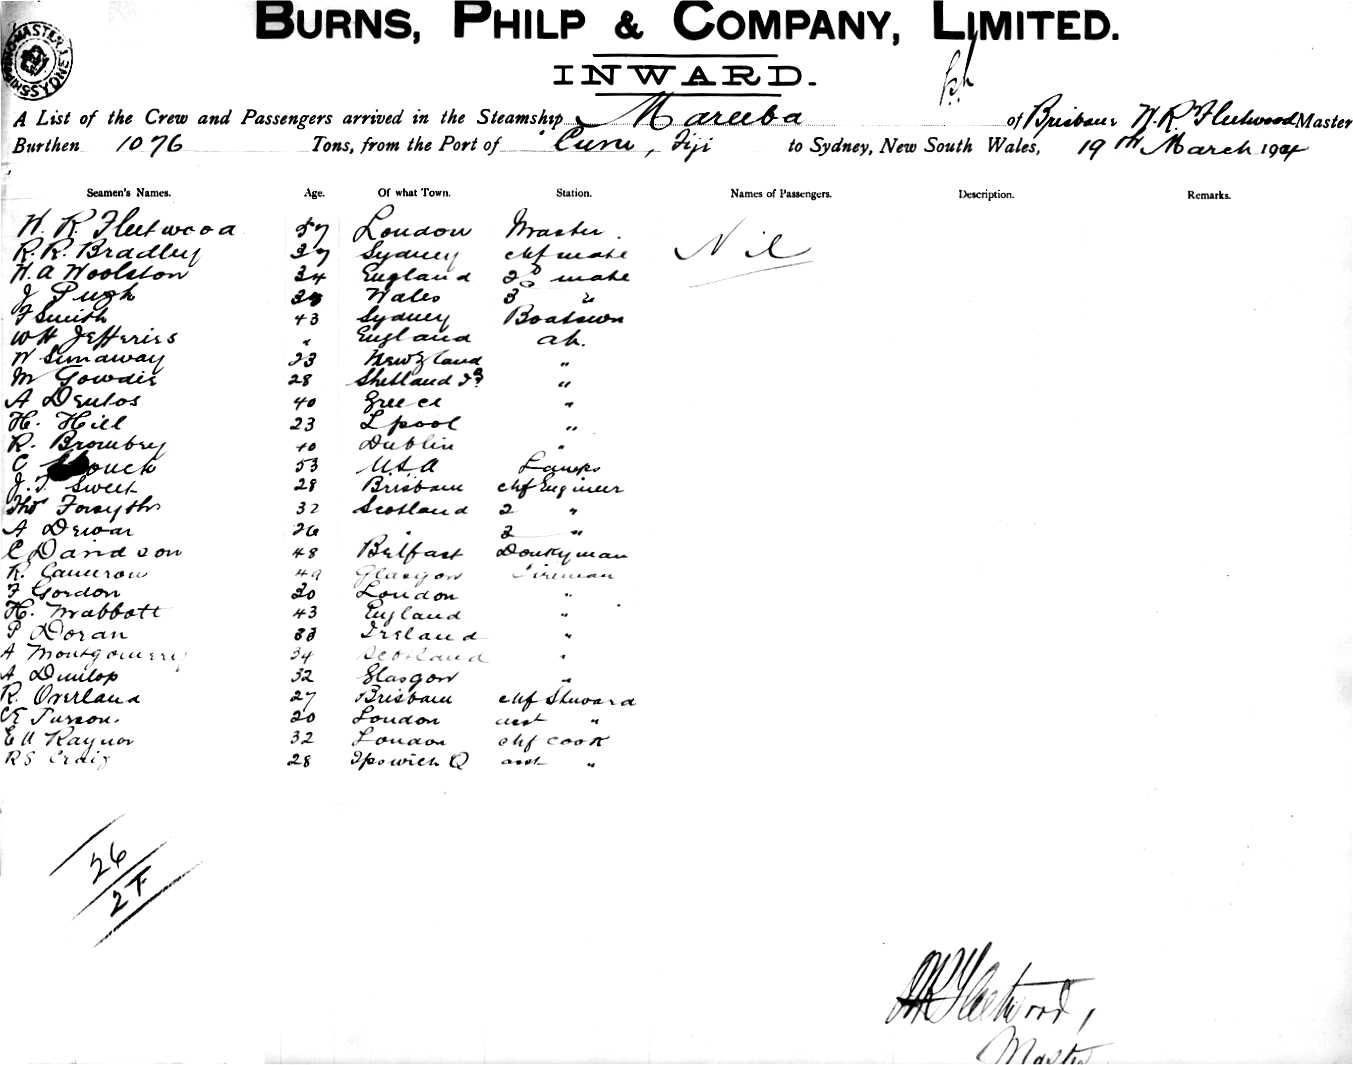 BURNS, PHILP & COMPANY, LIMITED.
INWARD.
SHIPPING MASTER SYDNEY
A List of the Crew and Passengers arrived in the Steamship Mareeba of Brisbane W. R. Fleetwood Master
Burthen 1076 Tons, from the Port of Fiji to Sydney, New South Wales, 19th March 1904
Seamen's Names. Age. Of what Town. Station. Names of Passengers. Description. Remarks.
W. R. Fleetwood 57 London Master. Nil
R. R. Bradley 37 Sydney chf mate
W. A Woolston 34 England 2D mate
J Pugh Wales 3 "
F Smith 43 Sydney Boatswn
WH Jefferies " England ab.
W Simaway 23 New Zland "
M Gowdie 28 Shetland Is "
A Deulos 40 Greece "
H. Hill 23 Lpool "
R. Brombey 40 Dublin "
C 53 USA Lamps
J. T. Sweet 28 Brisbane chf Engineer
Thos Forsyth 32 Scotland 2 "
A Dewar 26 " 3 "
C Davidson 48 Belfast Donkyman
R. Cameron 49 Glasgow Fireman
F Gordon 30 London "
H. Mabbott 43 England "
P Doran 33 Ireland "
A Montgomery 34 Scotland "
A Dunlop 32 Glasgow "
R. Overland 27 Brisbane chf Steward
20 London asst "
E A Raynor 32 London chf cook
R S Craig 28 Ipswich Q asst "
26
2F
WR Fleetwood,
Master